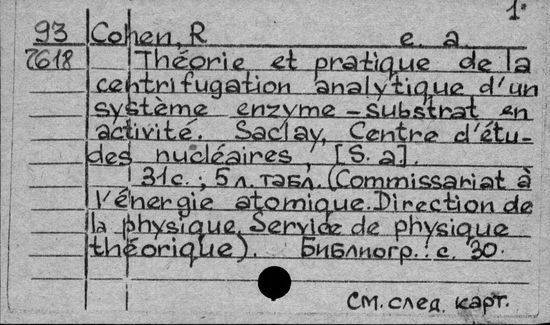 1.
93 Cohen, R e. a
7618 Théorie et pratique de la
centrifugation analytique d'un
système enzyme-substrat en
activité. Saclay, Centre d'étu-
des nucléaires, [S. a].
31с.; 5л. табл. (Commissariat à
l'énergie atomique. Direction de
la physique. Service de physique
théorique). Библиогр.: с. 30.
см. след. карт.